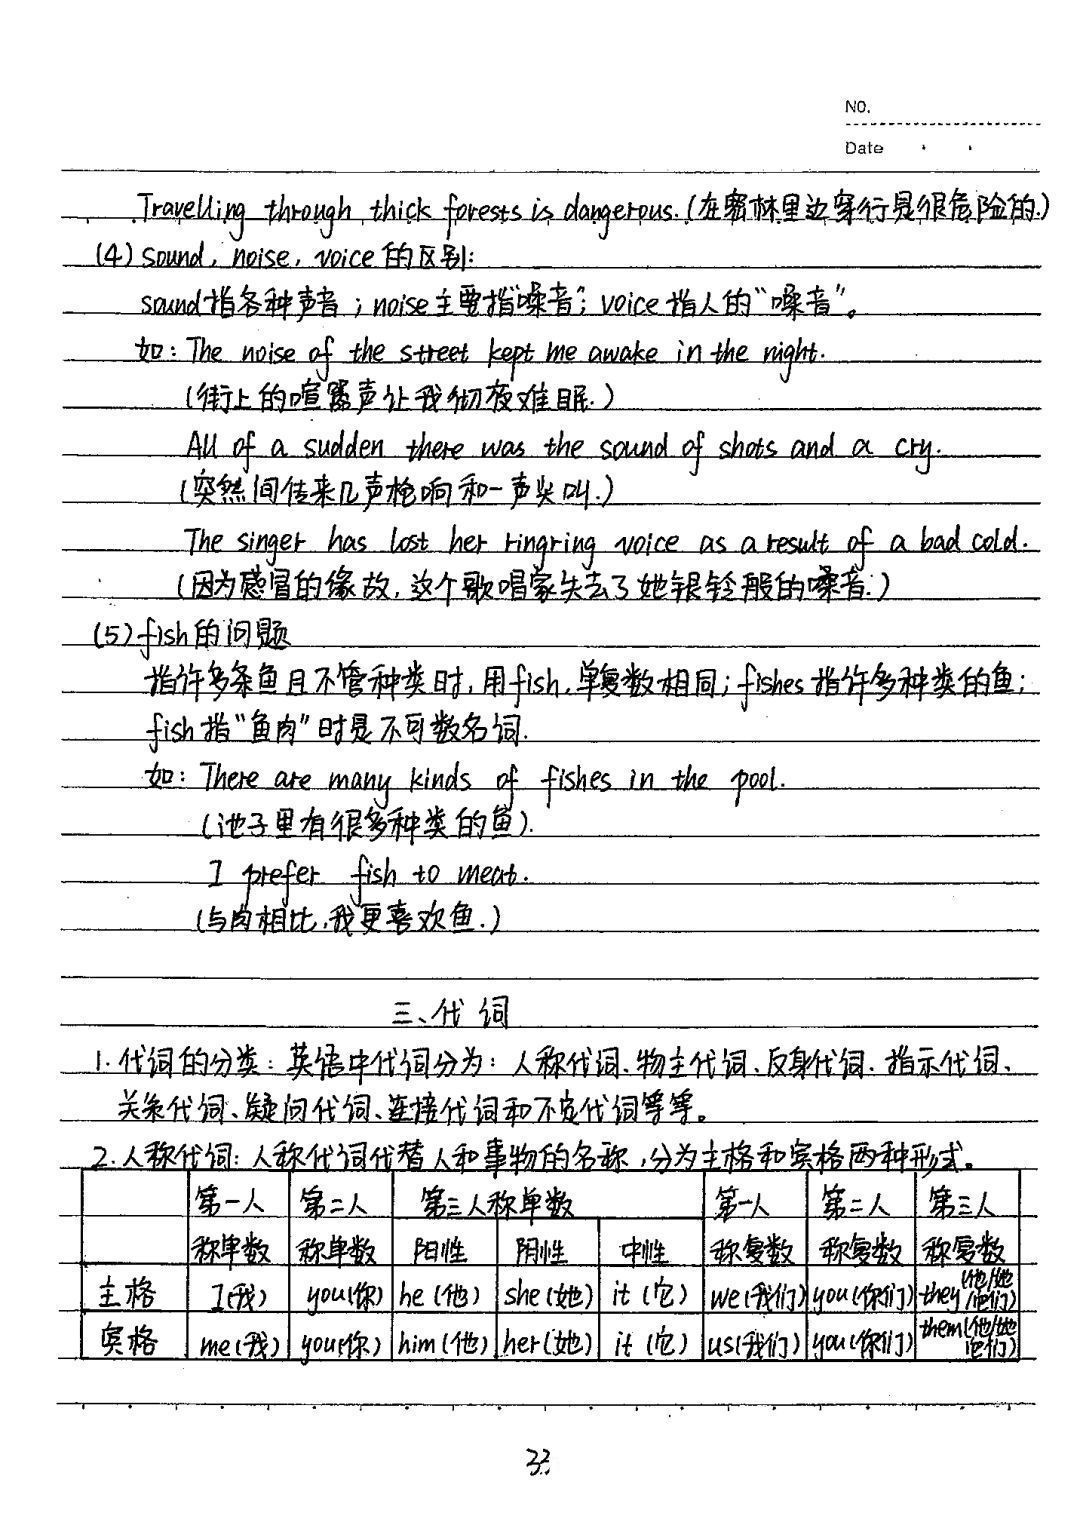 NO.
Date
Travelling through thick forests is dangerous.(在密林里边穿行是很危险的.)
(4) sound, noise, voice 的区别:
sound指各种声音；noise主要指“噪音”；voice 指人的“嗓音”。
如: The noise of the street kept me awake in the night.
(街上的喧嚣声让我彻夜难眠.)
All of a sudden there was the sound of shots and a cry.
(突然间传来几声枪响和一声尖叫.)
The singer has lost her ringring voice as a result of a bad cold.
(因为感冒的缘故,这个歌唱家失去了她银铃般的嗓音.)
(5) fish的问题
指许多条鱼且不管种类时,用fish,单复数相同；fishes指许多种类的鱼；
fish指“鱼肉”时是不可数名词.
如: There are many kinds of fishes in the pool.
(池子里有很多种类的鱼).
I prefer fish to meat.
(与肉相比,我更喜欢鱼.)
三、代词
1.代词的分类：英语中代词分为：人称代词、物主代词、反身代词、指示代词、
关系代词、疑问代词、连接代词和不定代词等等。
2.人称代词: 人称代词代替人和事物的名称,分为主格和宾格两种形式。
第一人 第二人 第三人称单数 第一人 第二人 第三人
称单数 称单数 阳性 阴性 中性 称复数 称复数 称复数
主格 I(我) you(你) he(他) she(她) it(它) we(我们) you(你们) they(他/她/它们)
宾格 me(我) you(你) him(他) her(她) it(它) us(我们) you(你们) them(他/她/它们)
33